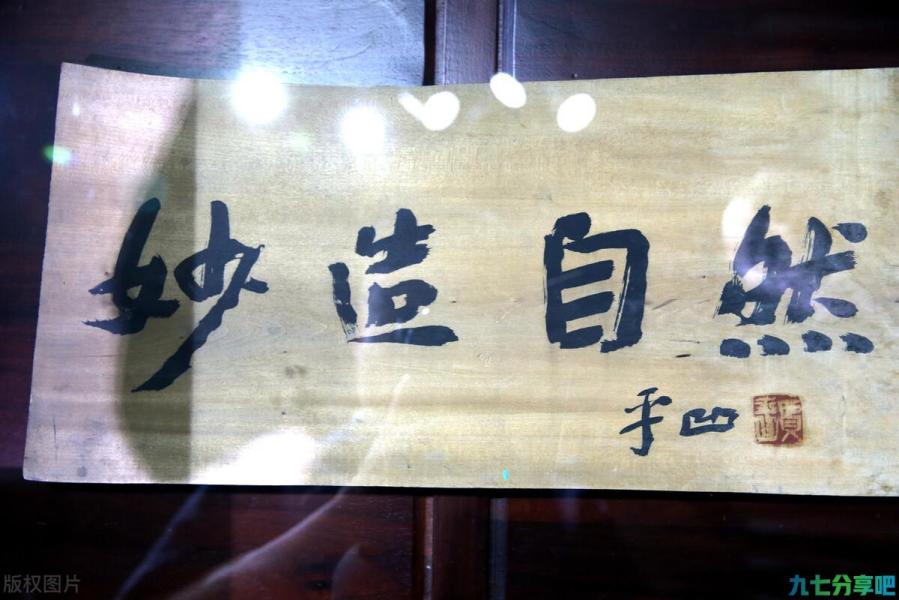 妙造自然
平凹
版权图片
九七分享吧